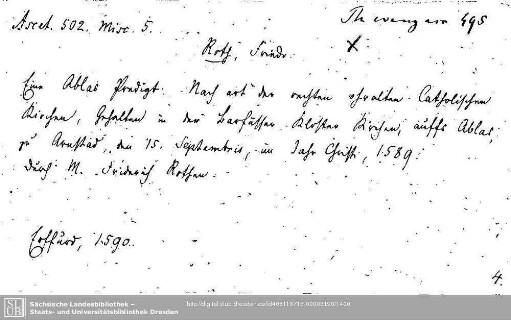 Ascet. 502. Misc. 5.
Th. evang. asc 495
Roth, Friedr.
Eine Ablas Predigt. Nach art der rechten uhralten Catholischen
Kirchen, Gehalten in der Barfüsser Kloster Kirchen, auffs Ablas,
zu Arnstad, den 15. Septembris, im Jahr Christi, 1589.
durch M. Friderich Rothen.
Erffurd, 1590.
4.
SLUB
Sächsische Landesbibliothek –
Staats- und Universitätsbibliothek Dresden